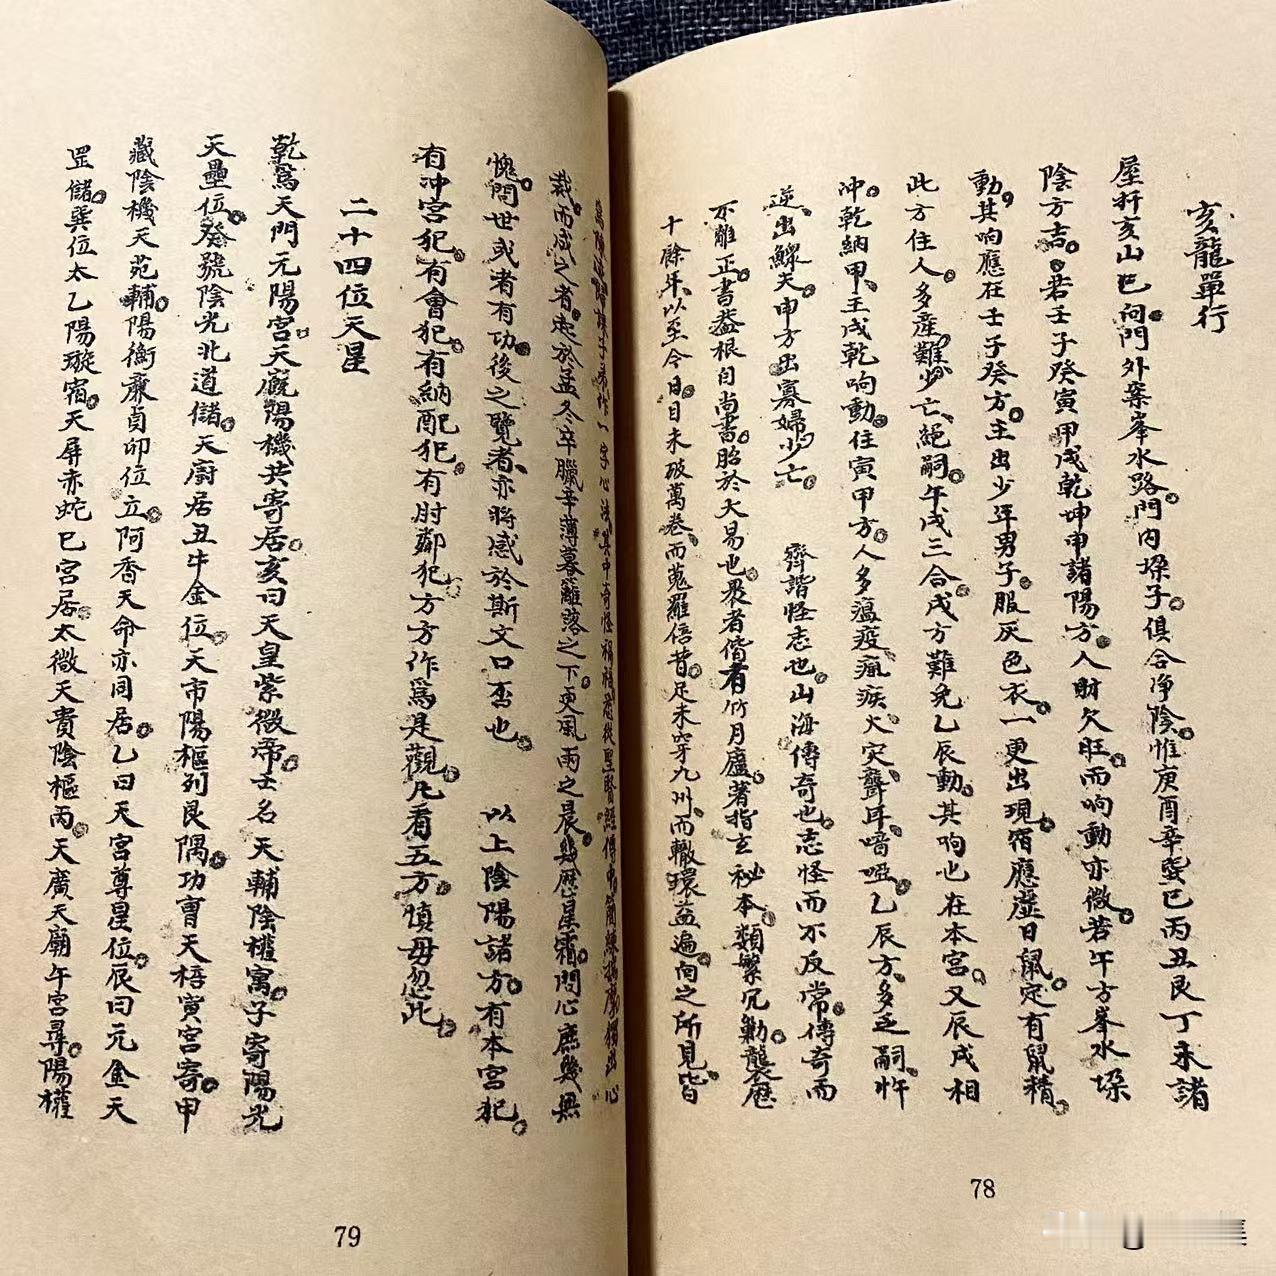 亥龍單行
屋扦亥山巳向。門外案峯水路。門內垜子。俱合净陰。惟庚酉辛巽巳丙丑艮丁未諸
陰方吉。若壬子癸寅甲戌乾坤申諸陽方。人財欠旺。而响動亦微。若午方峯水垜
動。其响應在壬子癸方。主出少年男子。服灰色衣。一更出現。宿應虛日鼠。定有鼠精。
此方住人。多產難少亡、絕嗣。午戌三合。戌方難免乙辰動。其响也在本宮。又辰戌相
冲。乾納甲、主戌乾响動。住寅甲方。人多瘟疫、瘋疾、火灾、聾耳、喑啞。乙辰方。多乏嗣忤
逆、出鰥夫。申方出寡婦少亡。 齊諧怪志也。山海傳奇也。志怪而不反常。傳奇而
不離正。書葢根自尚書。胎於大易也。𡬶者偕者竹月廬。著指玄秘本。類繁冗勦襲。歷
十餘年、以至今日。目未破萬卷。而蒐羅信昔。足未穿九州。而轍環益遍。向之所見。皆
裁。而成之者。起於孟冬。卒臘辛薄暮籬落之下。更風雨之晨。幾歷星霜。問心庶幾無
愧。問世或者有功。後之覽者。亦將感於斯文口否也。 以上陰陽諸方。有本宮犯。
有冲宮犯。有會犯。有納配犯。有肘鄰犯。方方作爲是觀。凡看五方。慎毋忽此。
二十四位天星
乾爲天門元陽宮。天廄陽機共寄居。亥曰天皇紫微帝。壬名天輔陰權寓。子寄陽光
天壘位。癸號陰光北道儲。天厨居丑牛金位。天市陽樞列艮隅。功曹天棓寅宮寄。甲
藏陰機天苑輔。陽衡廉貞卯位立。阿香天命亦同居。乙曰天宮尊星位。辰曰元金天
罡儲。巽位太乙陽璇宿。天屏赤蛇巳宮居。太微天貴陰樞丙。天廣天廟午宮尋。陽權
79
78